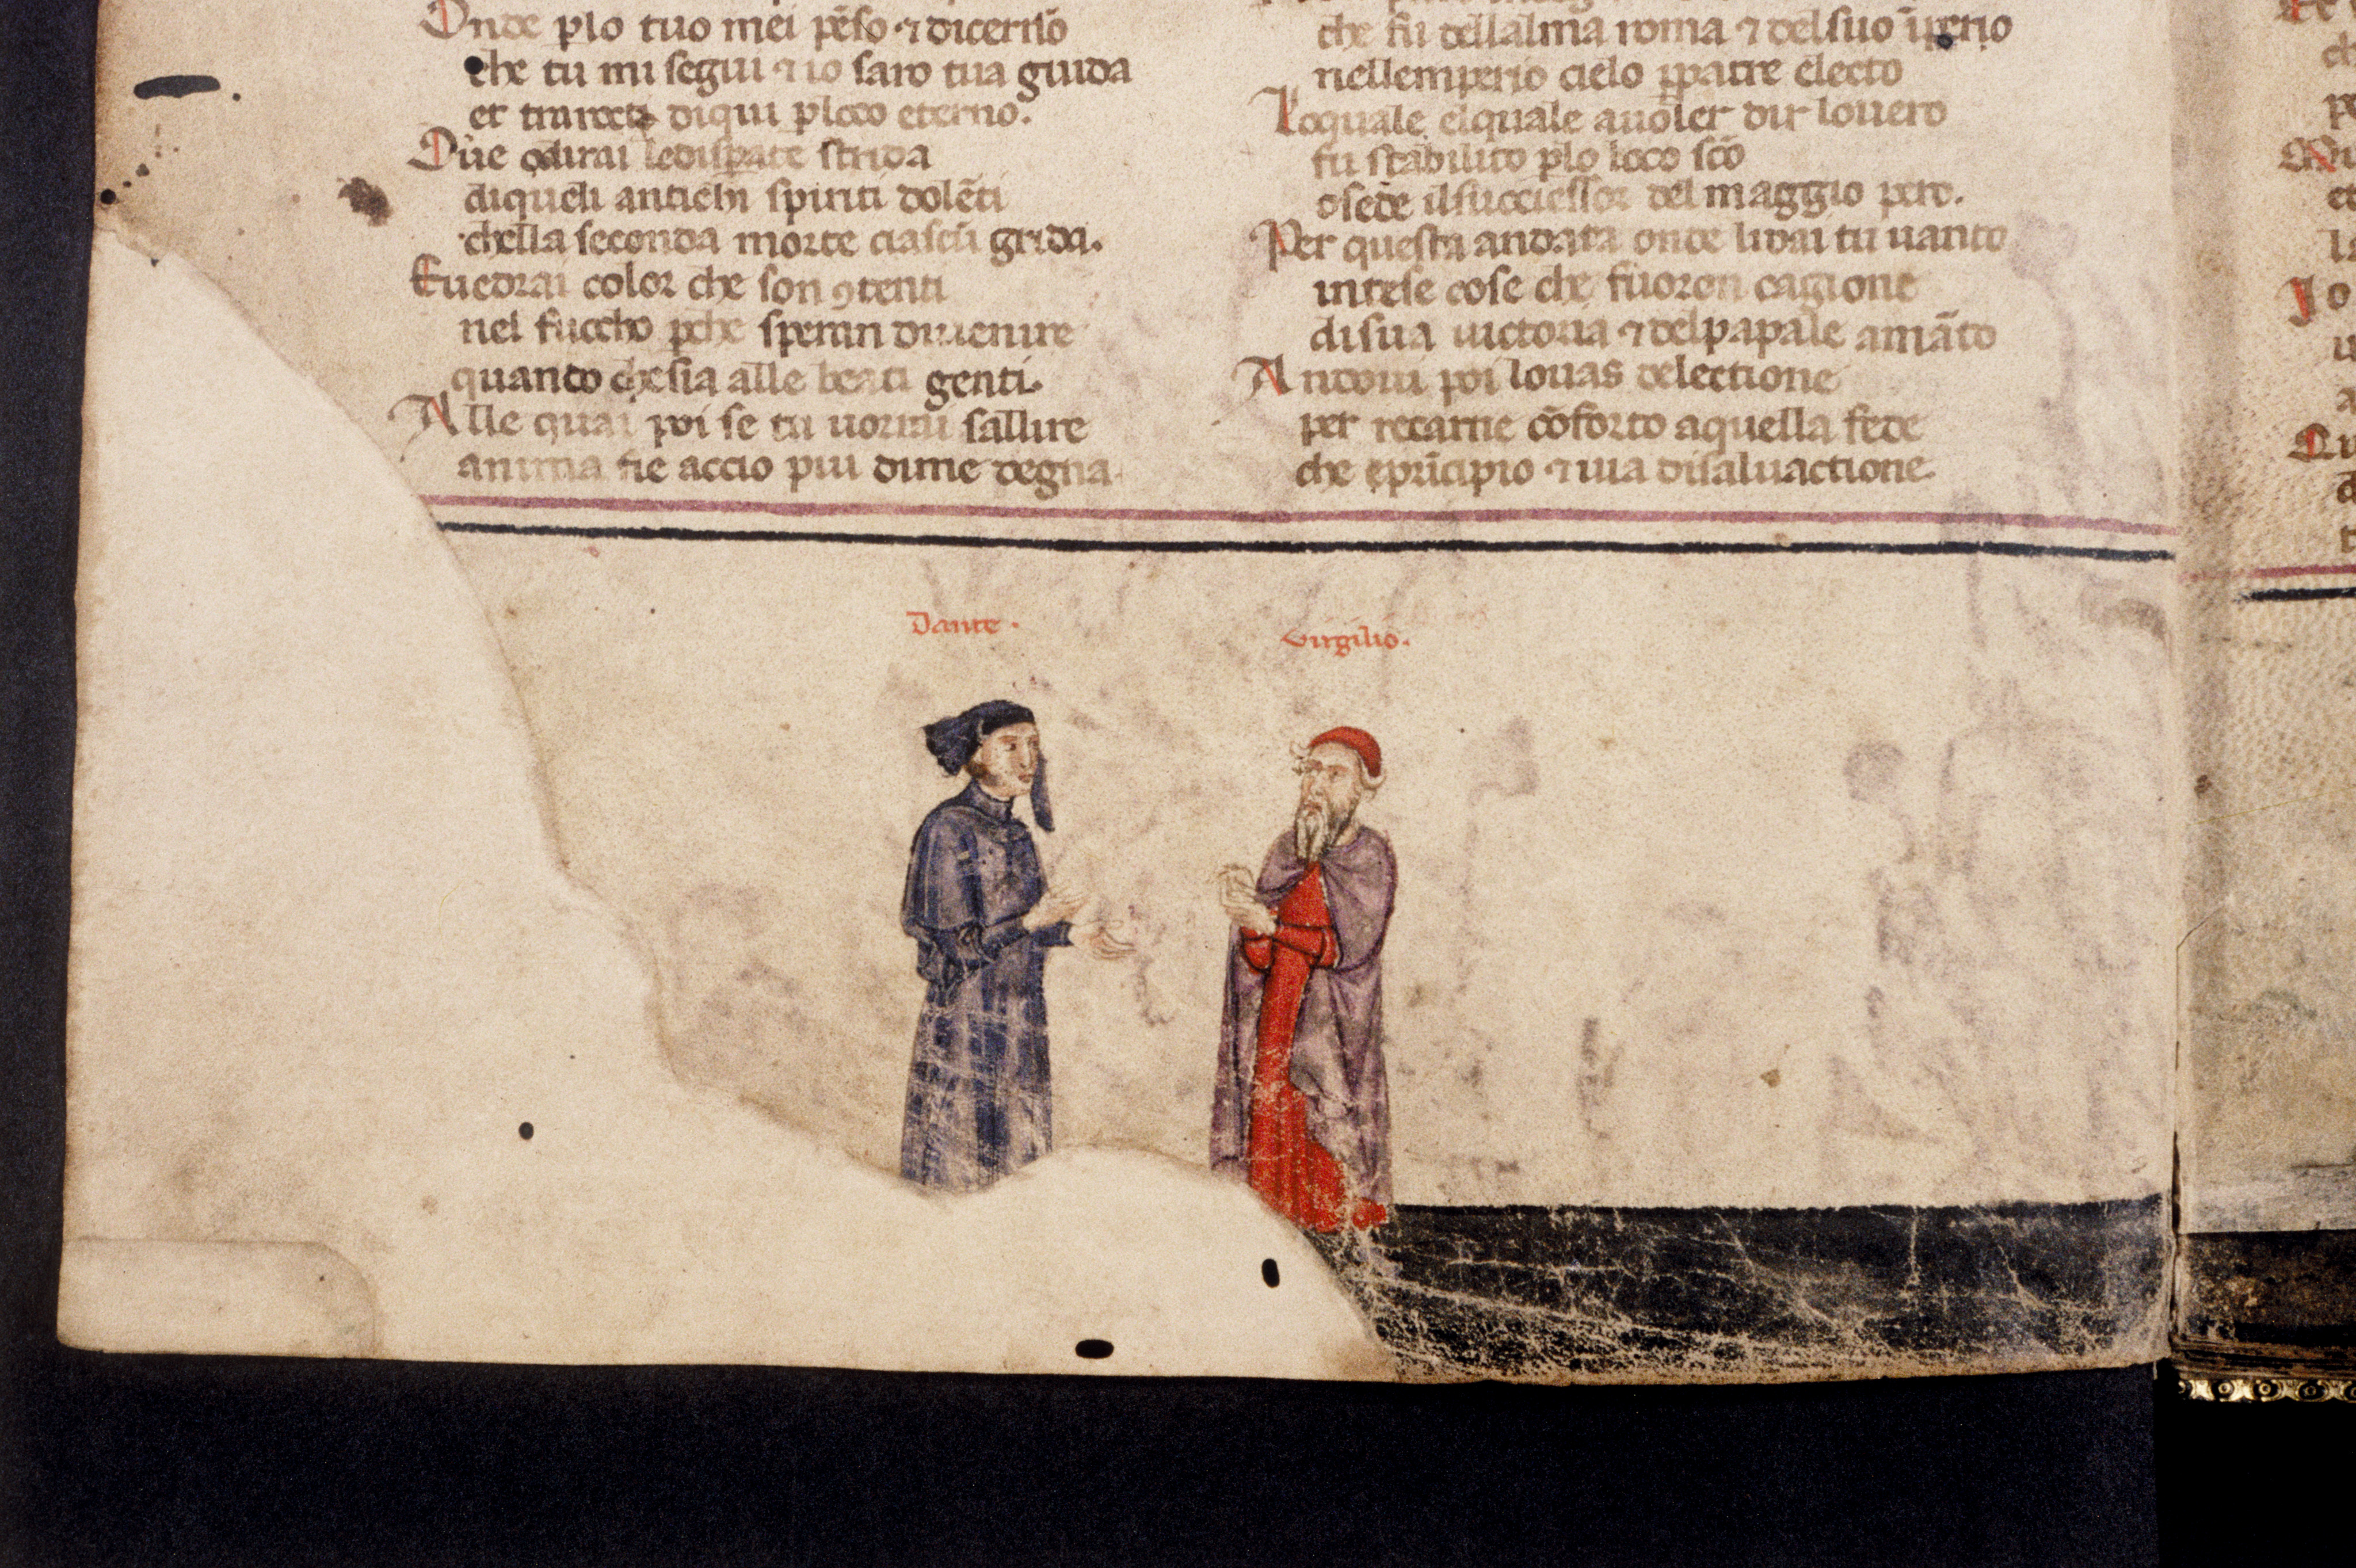 Onde plo tuo mei pẽso ⁊ dicerno
che tu mi segui ⁊ io saro tua guida
et trarrotti diqui ploco eterno.
Oue odirai ledisperate strida
diqueli antichi spiriti dolẽti
chella seconda morte ciascũ grida.
Euedrai color che son ꝯtenti
nel fuocho pche speran diuenire
quando chesia alle beati genti.
Alle quai poi se tu uorrai sallire
anima fie accio piu dime degna
che fu dellalma roma ⁊ delsuo ĩperio
nellemperio cielo ppatre electo
Loquale elquale auoler dir louero
fu stabilito plo loco sc̃o
osede ilsuccessor del maggio pero.
Per questa andata onde lidai tu uanto
intese cose che fuoron cagione
disua uictoria ⁊ delpapale amãto
Andoui poi louas delectione
per recarne cõforto aquella fede
che eprĩcipio ⁊ uia disaluactione
Dante.
Virgilio.